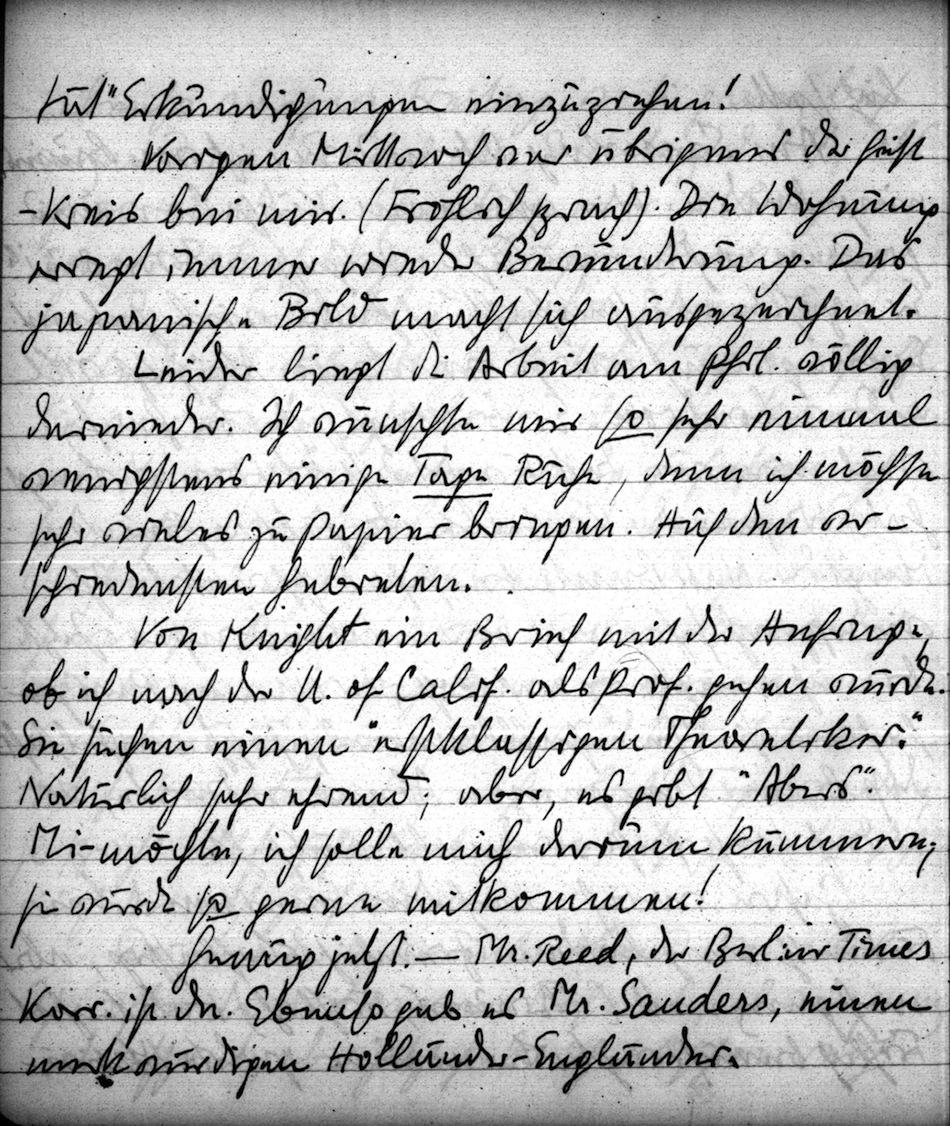 tut" Erkundigungen einzuziehen!
Vorigen Mittwoch war übrigens der Geist
-Kreis bei mir. (Fröhlich sprach). Die Wohnung
erregt immer wieder Bewunderung. Das
japanische Bild macht sich ausgezeichnet.
Leider liegt die Arbeit am Phil. völlig
darnieder. Ich wünschte mir so sehr einmal
wenigstens einige Tage Ruhe, denn ich möchte
sehr vieles zu Papier bringen. Auf den ver-
schiedensten Gebieten.
Von Knight ein Brief mit der Anfrage,
ob ich nach der U. of Calif. als Prof. gehen würde.
Sie suchen einen "erstklassigen Theoretiker."
Natürlich sehr ehrend; aber, es gibt "Abers".
Mi-möchte, ich solle mich darum kümmern;
sie würde so gerne mitkommen!
Genug jetzt. — Mr. Reed, der Berliner Times
Korr. ist da. Ebenso gab es Mr. Sanders, einen
merkwürdigen Holländer-Engländer.